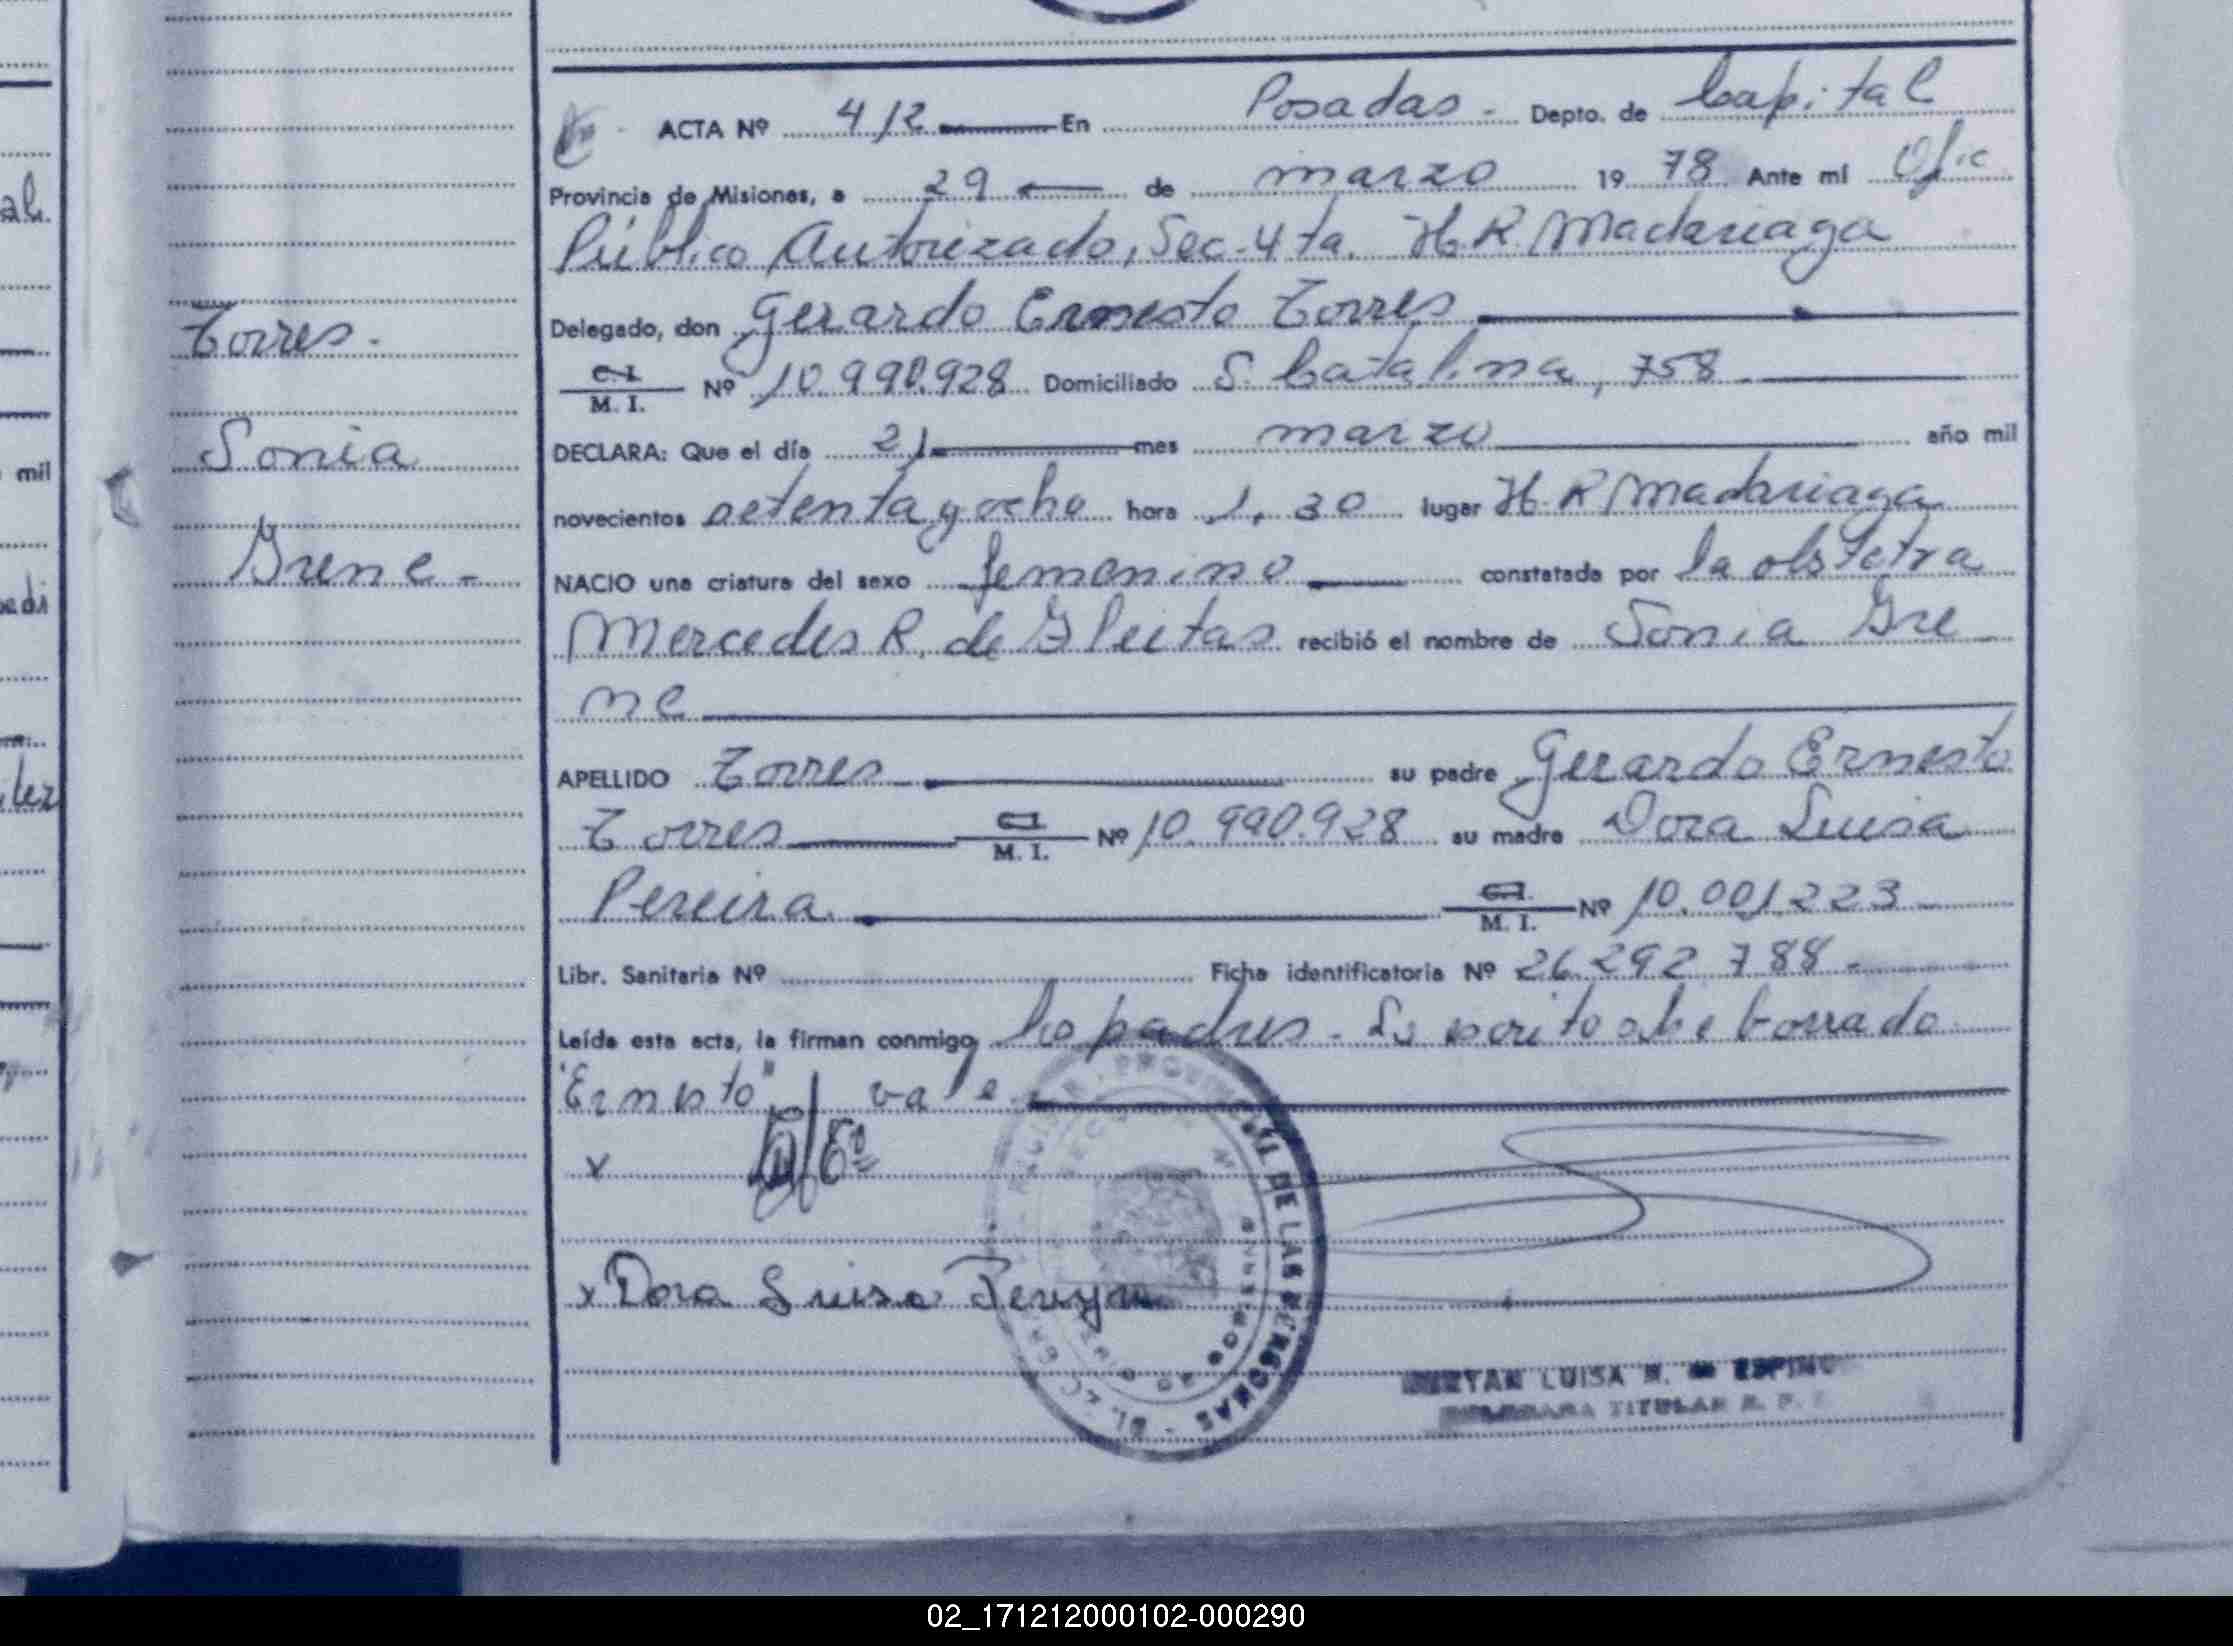 ACTA Nº 412 En Posadas - Depto. de Capital
Provincia de Misiones, a 29 de marzo 1978 Ante mí Ofic
Público Autorizado, Sec. 4ta. H. R. Madariaga
Delegado, don Gerardo Ernesto Torres
C. I. M. I. Nº 10.990.928 Domiciliado S. Catalina, 758
DECLARA: Que el día 21 mes marzo año mil
novecientos setenta y ocho hora 1,30 lugar H. R. Madariaga
NACIO una criatura del sexo femenino constatada por la obstetra
Mercedes R. de Fleitas recibió el nombre de Sonia Ire
ne
APELLIDO Torres su padre Gerardo Ernesto
Torres C.I. M. I. Nº 10.990.928 su madre Dora Luisa
Pereira C.I. M. I. Nº 10.001.223
Libr. Sanitaria Nº Ficha identificatoria Nº 26.292.788 -
Leída esta acta, la firman conmigo los padres - Lo escrito sobre borrado
"Ernesto" vale
x
x Dora Luisa
PROVINCIAL DE LAS PERSONAS
LUISA
TITULAR
Torres.
Sonia
Irene -
al.
mil
02_171212000102-000290